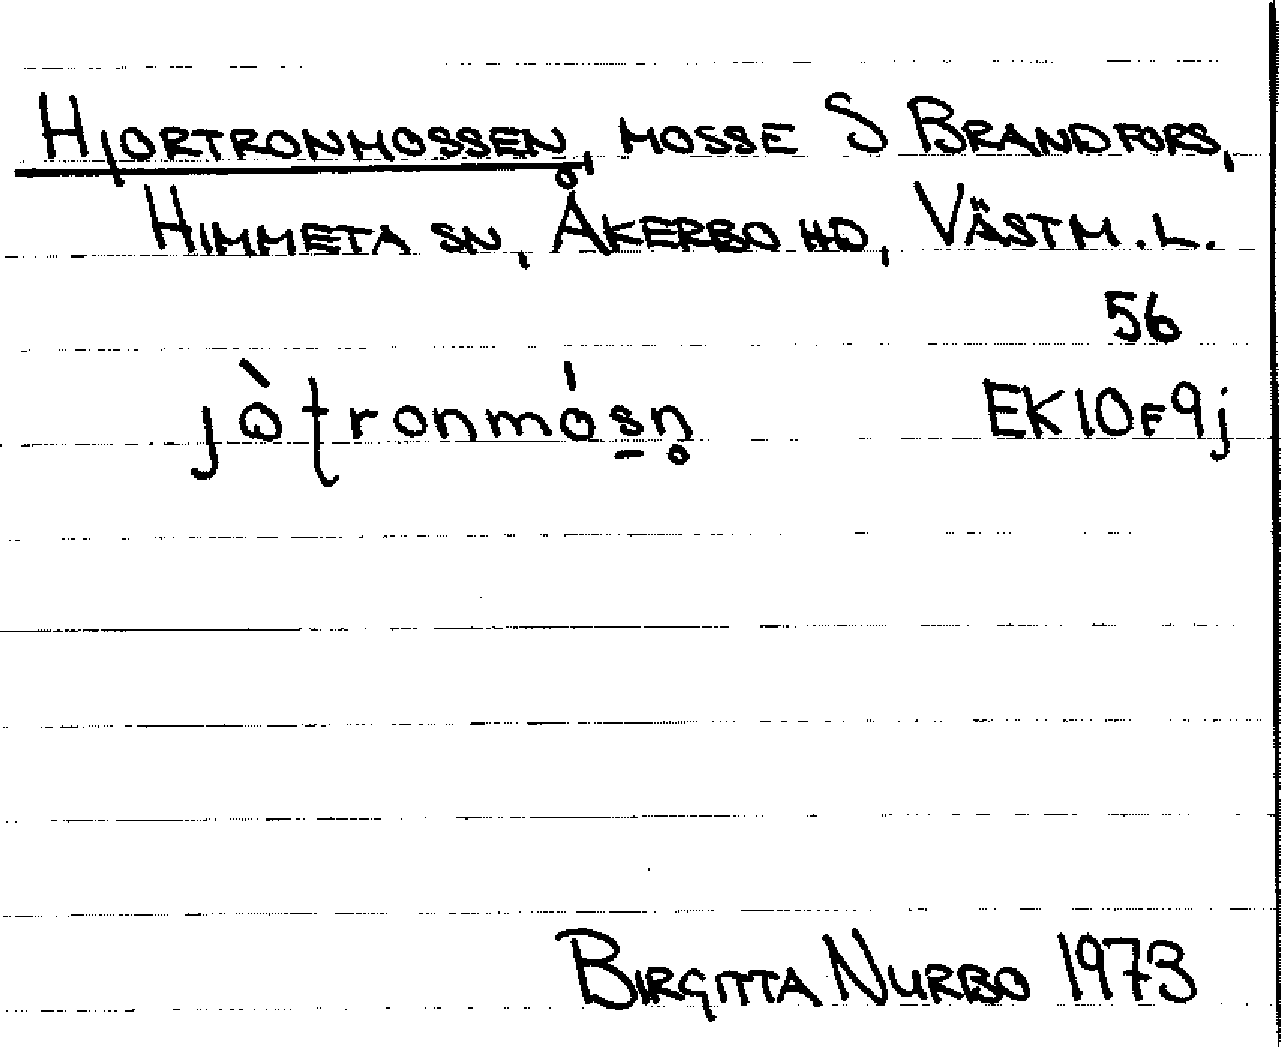 Hjortronmossen, mosse S Brandfors,
Himmeta sn, Åkerbo hd, Västm. l.
56
jòʈronmósn̥ EK10F9j
Birgitta Nurbo 1973